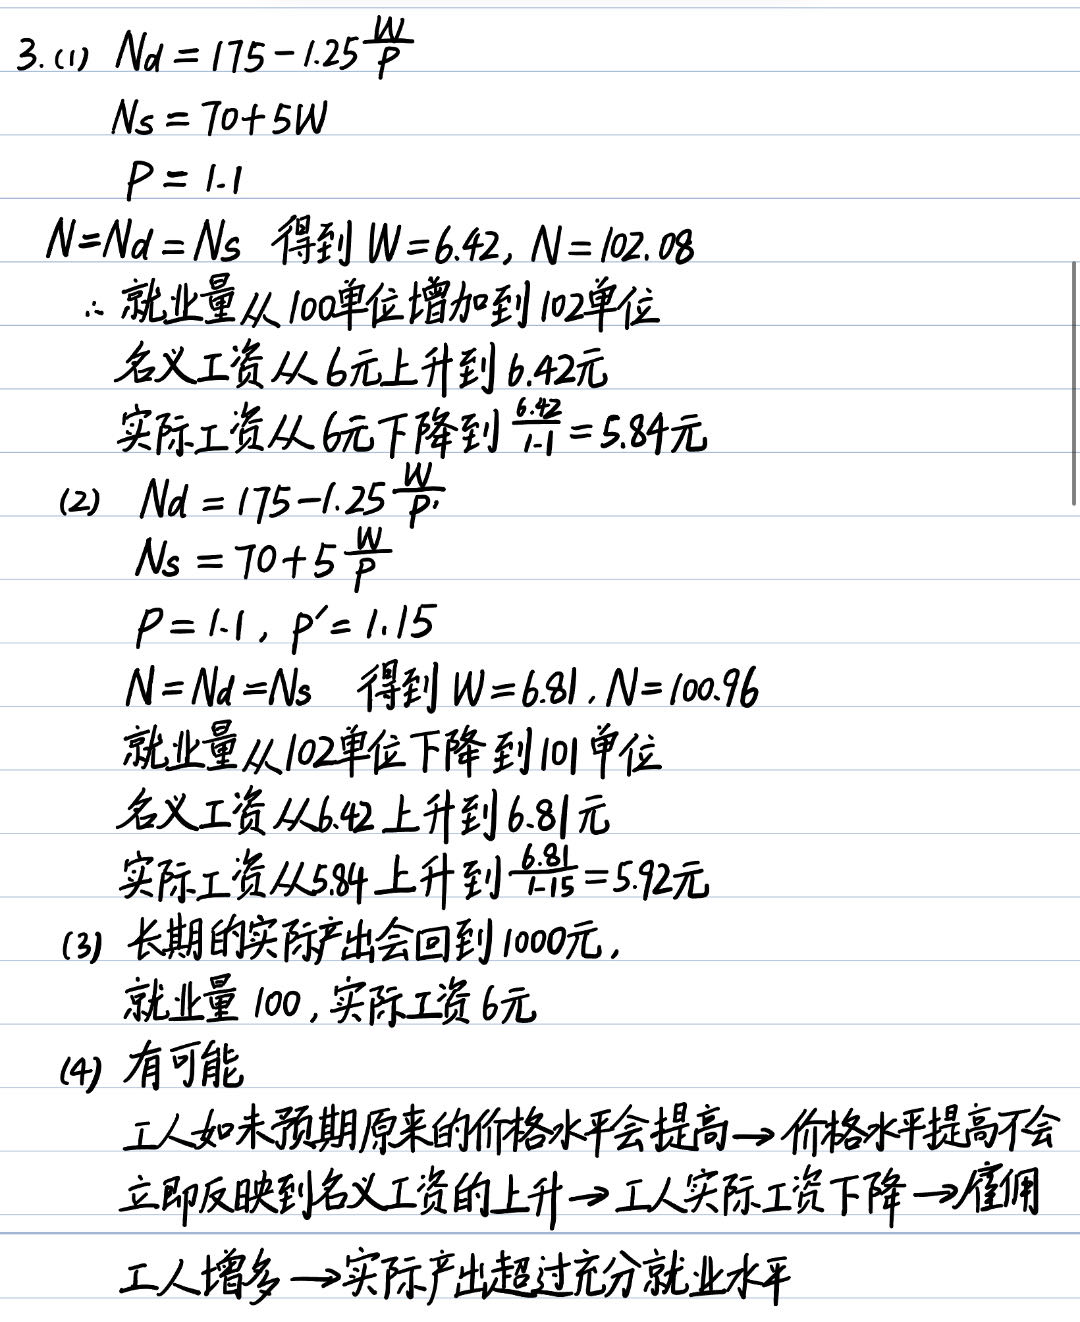 3.(1) Nd = 175 - 1.25 W/P
Ns = 70 + 5W
P = 1.1
N = Nd = Ns 得到 W = 6.42, N = 102.08
∴ 就业量从100单位增加到102单位
名义工资从6元上升到6.42元
实际工资从6元下降到 6.42/1.1 = 5.84元
(2) Nd = 175 - 1.25 W/P'
Ns = 70 + 5 W/P
P = 1.1, P' = 1.15
N = Nd = Ns 得到 W = 6.81, N = 100.96
就业量从102单位下降到101单位
名义工资从6.42上升到6.81元
实际工资从5.84上升到 6.81/1.15 = 5.92元
(3) 长期的实际产出会回到1000元,
就业量100,实际工资6元
(4) 有可能
工人如未预期原来的价格水平会提高→价格水平提高不会
立即反映到名义工资的上升→工人实际工资下降→雇佣
工人增多→实际产出超过充分就业水平